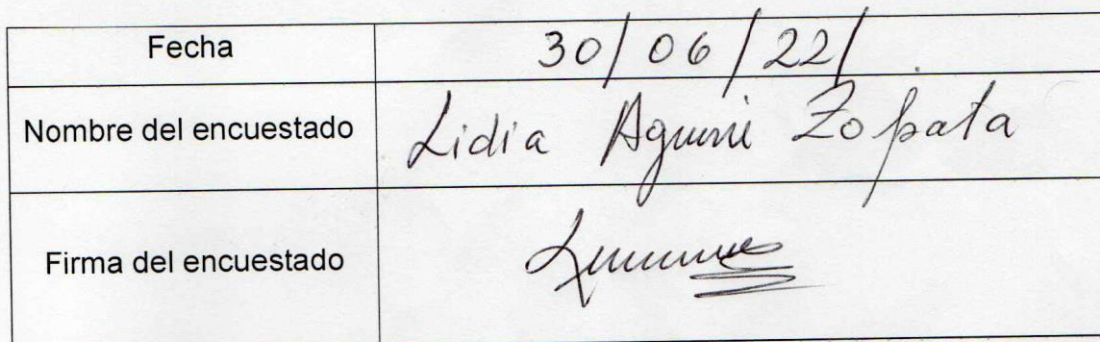 Fecha 30/06/22/
Nombre del encuestado Lidia Aguirre Zapata
Firma del encuestado